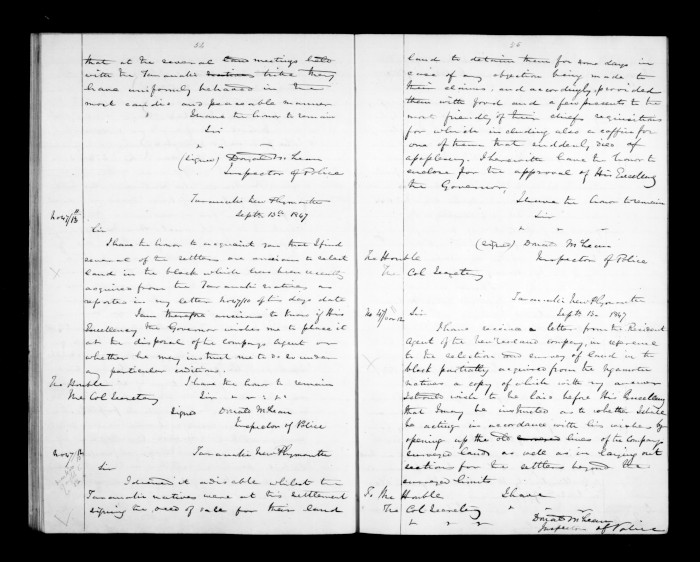 that at the several meetings held
with the Taranaki natives tribe they
have uniformly behaved in the
most candid and peaceable manner
I have the honor to remain
Sir
(signed) Donald McLean
Inspector of Police
Taranaki New Plymouth
Septr 13th 1847
No 47/11
Sir
I have the honor to acquaint you that I find
several of the settlers are anxious to select
land in the block which has been recently
acquired from the Taranaki natives as
reported in my letter No 47/10 of this days date
I am therefore anxious to know if His
Excellency the Governor wishes me to place it
at the disposal of the companys Agent or
whether he may instruct me to do so under
any particular conditions.
The Honble I have the honor to remain
The Col Secretary Sir
Signed Donald McLean
Inspector of Police
No 47/12
Taranaki New Plymouth
Sir
I deemed it advisable whilst the
Taranaki natives were at this settlement
signing the deed of sale for their land
land to detain them for some days in
case of any objection being made to
their claims. and accordingly provided
them with food and a few presents to the
most friendly of their chiefs requisitions
for which including also a coffin for
one of them that suddenly died of
apoplexy. I herewith have the honor to
enclose for the approval of His Excellency
the Governor,
I have the honor to remain
Sir
(signed) Donald McLean
The Honble Inspector of Police
The Col Secretary
Taranaki New Plymouth
Septr 13th 1847
Sir
I have received a letter from the Resident
Agent of the New Zealand company, in reference
to the selection and survey of land in the
block partially acquired from the Ngamotu
natives a copy of which with my answer
wish to be laid before His Excellency
that I may be instructed as to whether I shall
be acting in accordance with his wishes by
opening up the old surveyed lines of the Companys
surveyed lands as well as in laying out
sections for the settlers beyond the
surveyed limits
To The Honble I have
The Col Secretary
Donald McLean
Inspector of Police